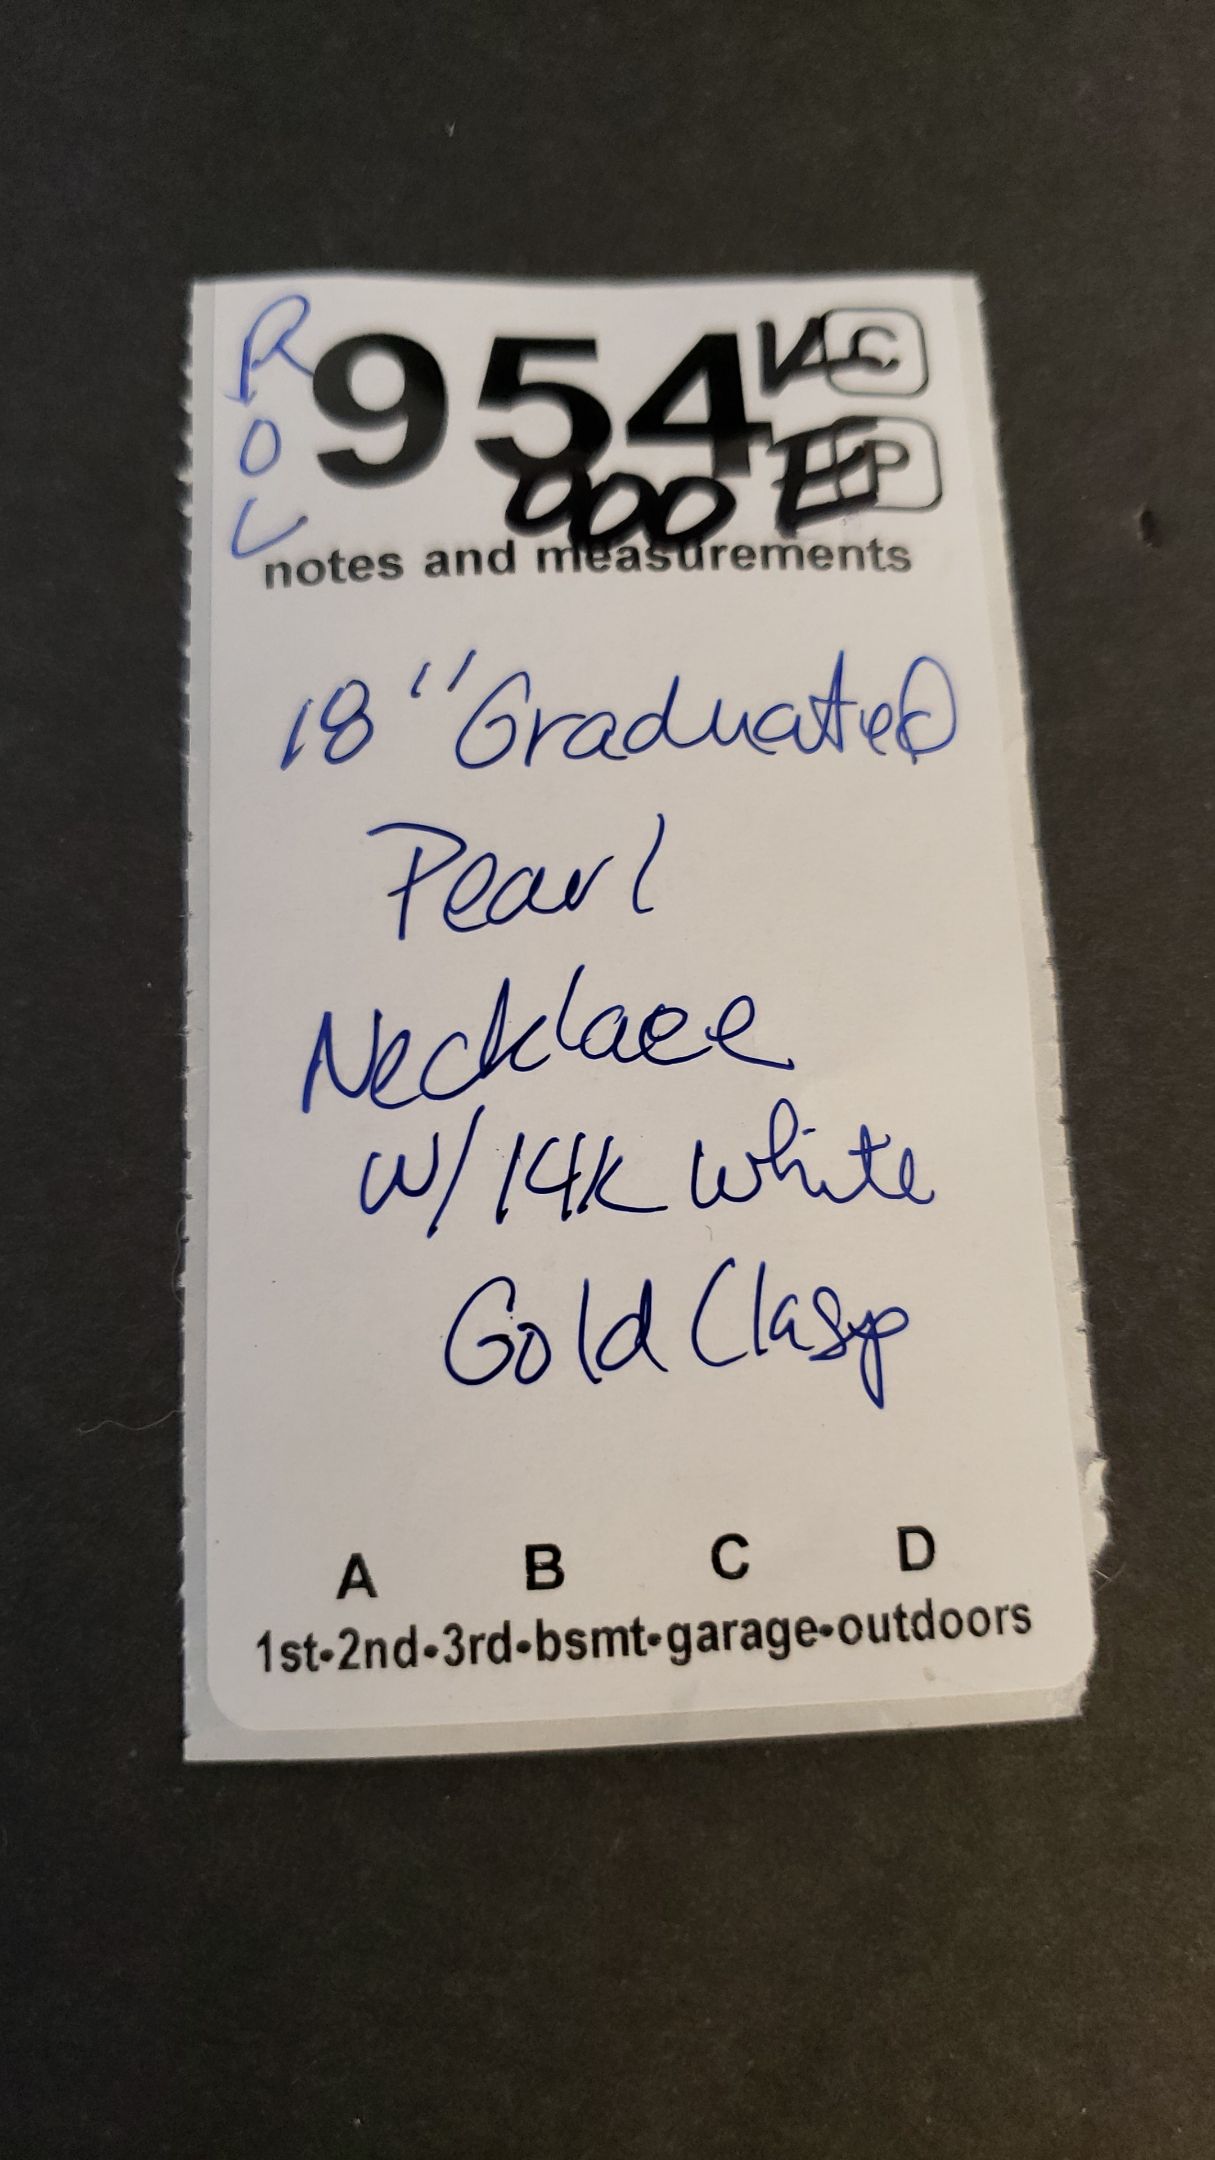 R
O
L
954
C
P
000 E
notes and measurements
18" Graduated
Pearl
Necklace
w/ 14k white
Gold Clasp
A B C D
1st•2nd•3rd•bsmt•garage•outdoors